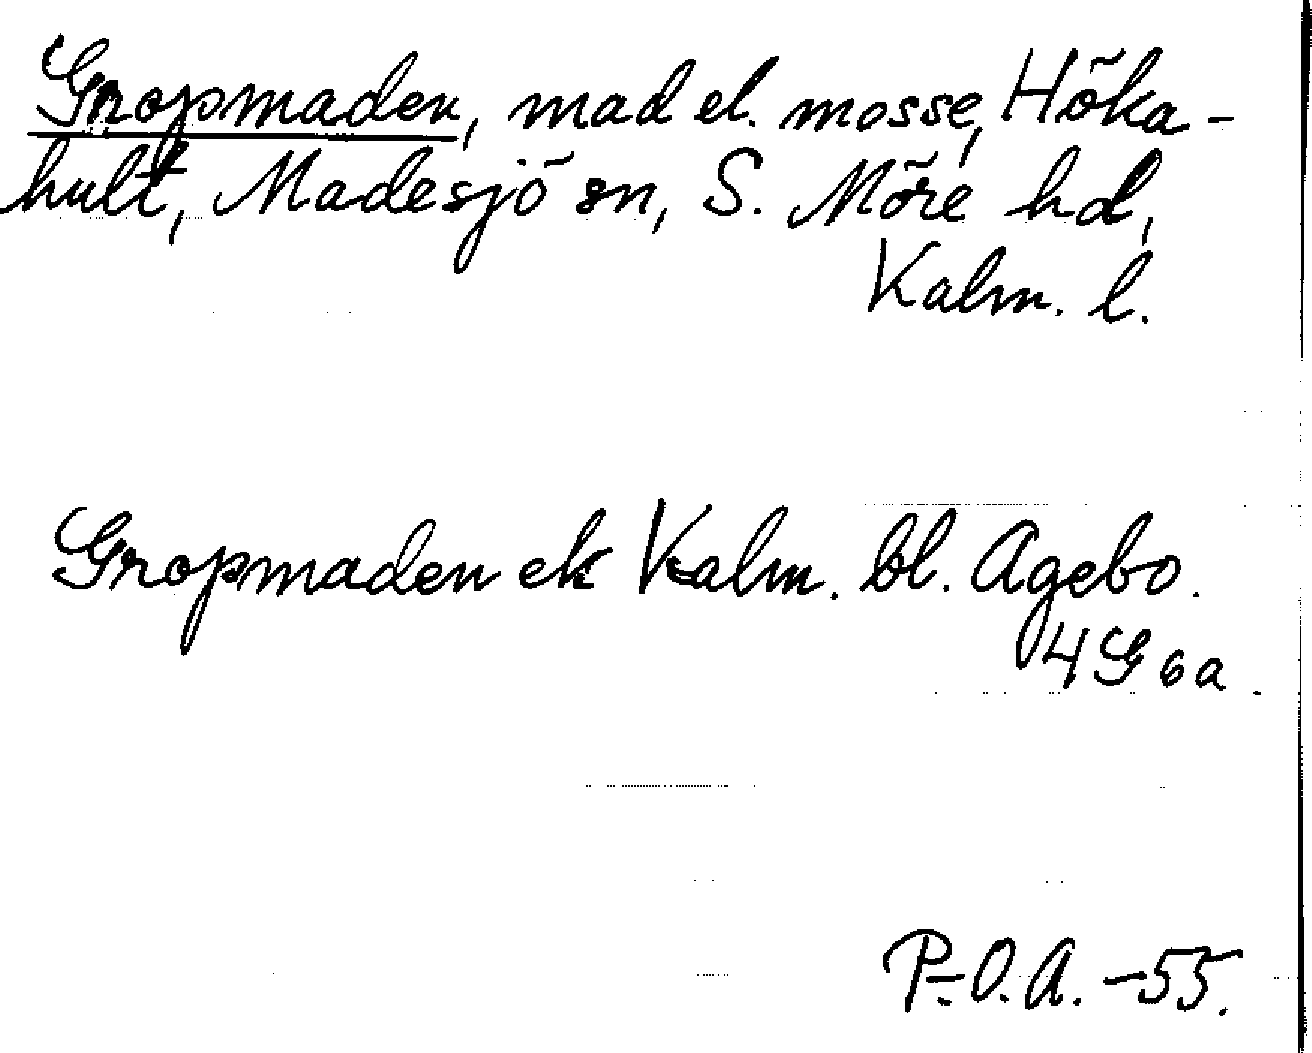 Gropmaden, mad el. mosse, Höka-
hult, Madesjö sn, S. Möre hd,
Kalm. l.
Gropmaden ek Kalm. bl. Agebo.
4 G 6 a.
P.-O. A. -55.